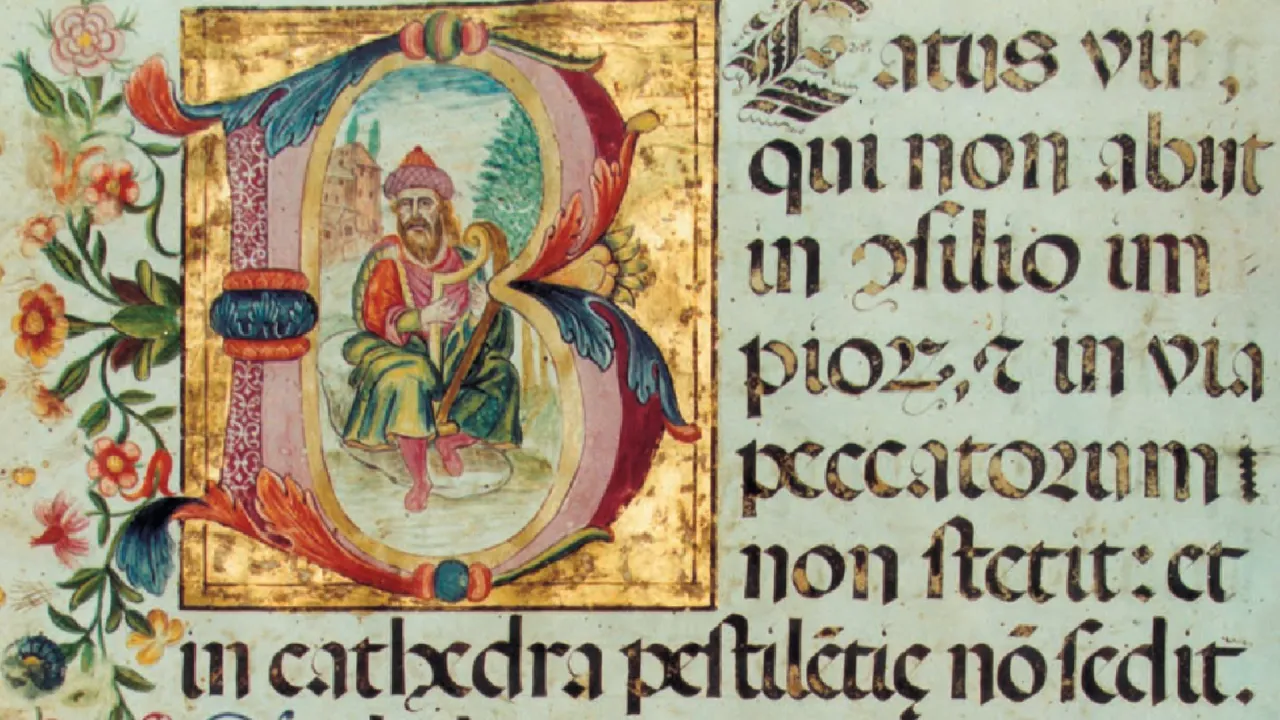 B Eatus vir,
qui non abijt
in ꝯſilio im
pioꝝ, ⁊ in via
peccatorum
non ſtetit: et
in cathedra peſtilẽtię nõ ſedit.